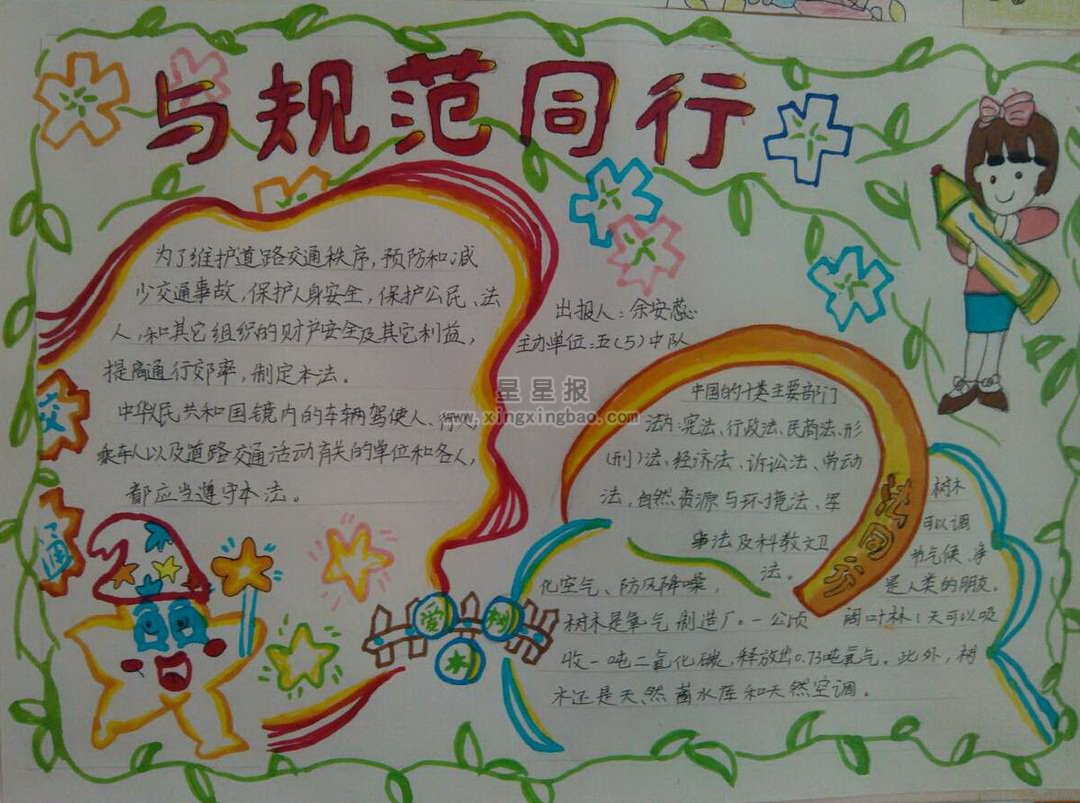 与规范同行
为了维护道路交通秩序,预防和减
少交通事故,保护人身安全,保护公民、法
人,和其它组织的财产安全及其它利益,
提高通行效率,制定本法。
中华人民共和国镜内的车辆驾使人、行人
乘车人以及道路交通活动有关的单位和各人,
都应当遵守本法。
出报人:余安蕊
主办单位:五(5)中队
星星报
www.xingxingbao.com
交
通
中国的十类主要部门
法为:宪法、行政法、民商法、形
(刑)法、经济法、诉讼法、劳动
法,自然资源与环境法、军
事法及科教文卫
法。
法同行
爱树木
树木
可以调
节气候、净
化空气、防风降噪,是人类的朋友。
树木是氧气制造厂。一公顷阔叶林1天可以吸
收一吨二氧化碳,释放出0.73吨氧气。此外,树
木还是天然蓄水库和天然空调。